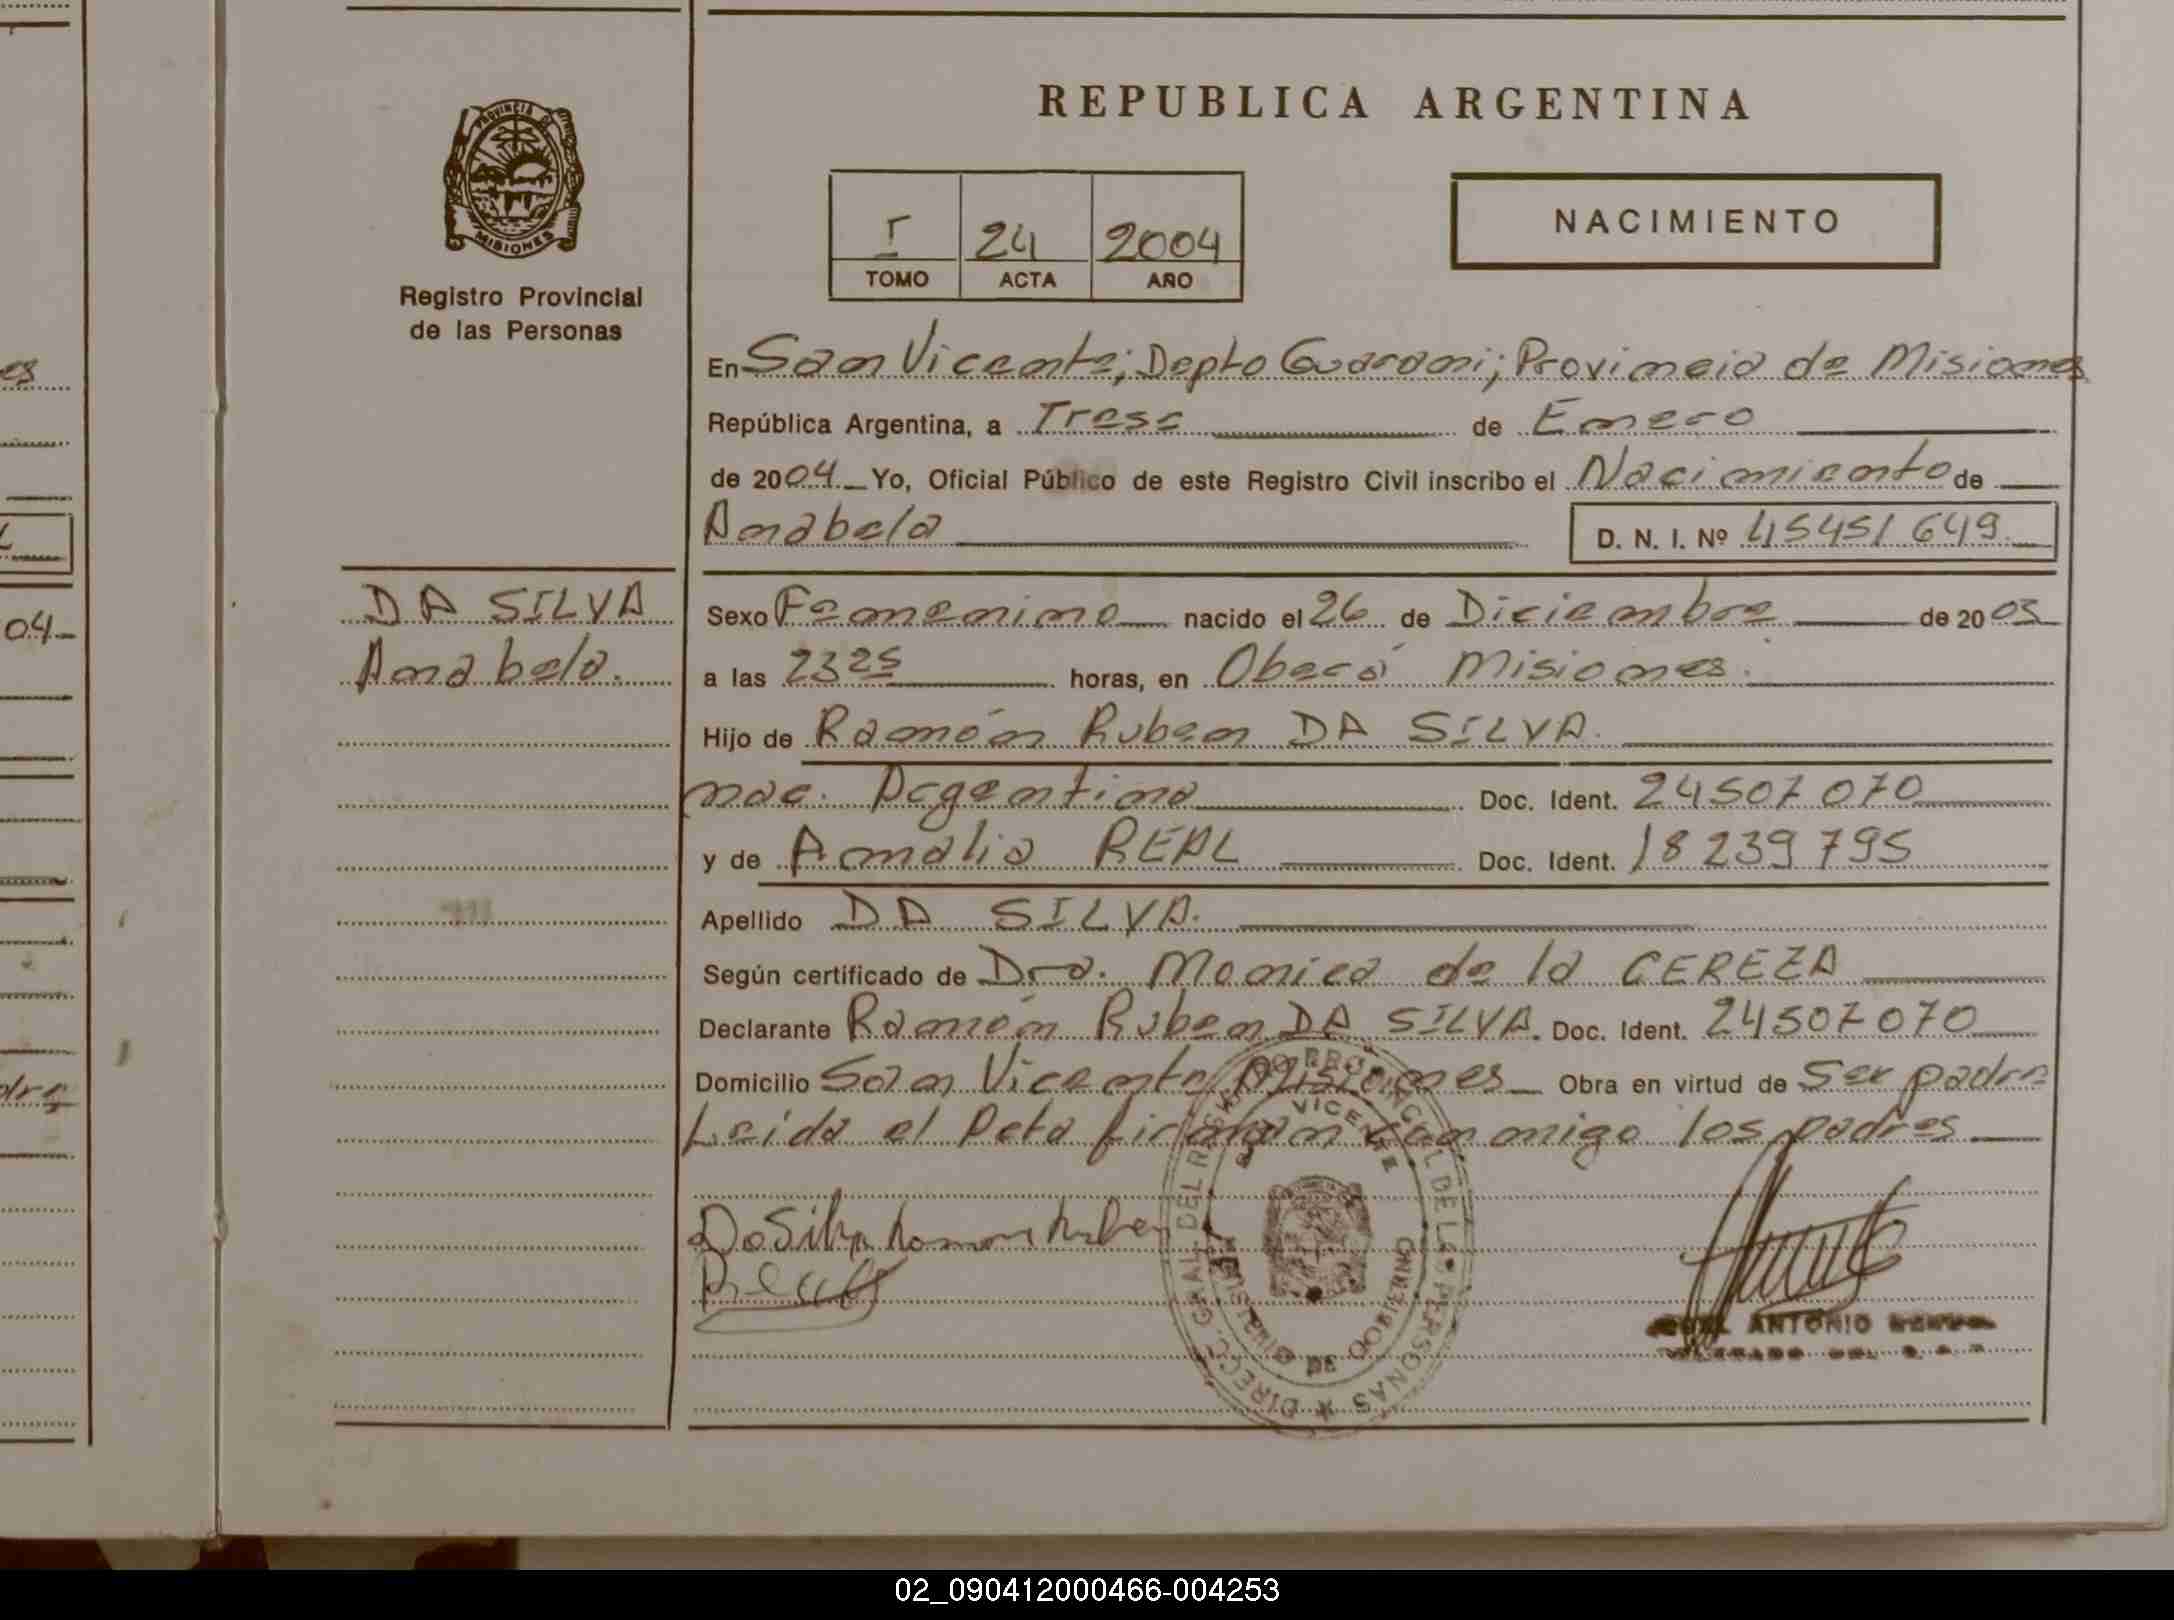 REPUBLICA ARGENTINA
PROVINCIA DE
MISIONES
Registro Provincial
de las Personas
I 24 2004
TOMO ACTA AÑO
NACIMIENTO
En San Vicente; Depto Guarani; Provincia de Misiones
República Argentina, a Trese de Enero
de 2004 Yo, Oficial Público de este Registro Civil inscribo el Nacimiento de
Anabela D. N. I. Nº 45451649
DA SILVA
Anabela.
Sexo Femenino nacido el 26 de Diciembre de 2003
a las 23 25 horas, en Oberá Misiones.
Hijo de Ramón Ruben DA SILVA.
nac. Argentina Doc. Ident. 24507070
y de Amalia REAL Doc. Ident. 18239795
Apellido DA SILVA.
Según certificado de Dra. Monica de la CEREZA
Declarante Ramón Ruben DA SILVA. Doc. Ident. 24507070
Domicilio San Vicente Misiones Obra en virtud de Ser padre
Leída el Acta firman conmigo los padres
Da Silva Ramon Ruben
DIRECC. GRAL. DEL REGISTRO PROVINCIAL DE LAS PERSONAS
VICENTE
DE GOBIERNO
ANTONIO
es
04
dre
02_090412000466-004253